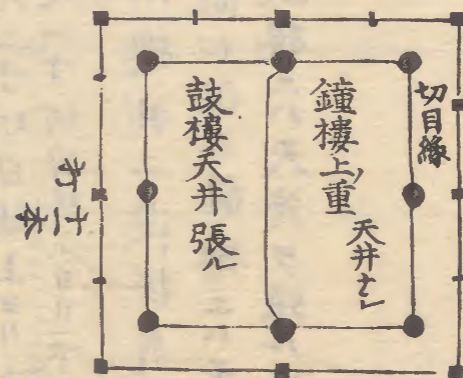 切目縁
鐘樓上ノ重
天井ナシ
鼓樓天井張ル
十二本